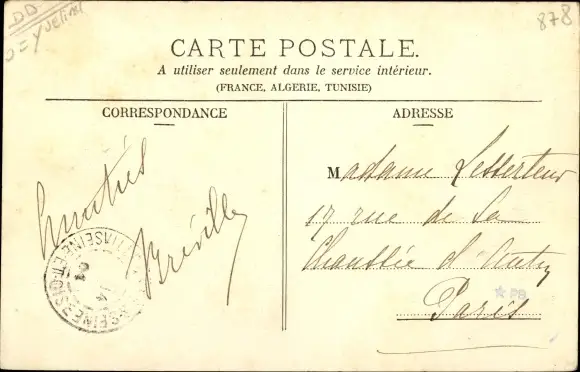 DD
878
CARTE POSTALE.
A utiliser seulement dans le service intérieur.
(FRANCE, ALGERIE, TUNISIE)
CORRESPONDANCE
ADRESSE
Bréville
Madame Lesserteur
17 rue de La
Chaussée d'Antin
Paris
PB
SEINE ET OISE